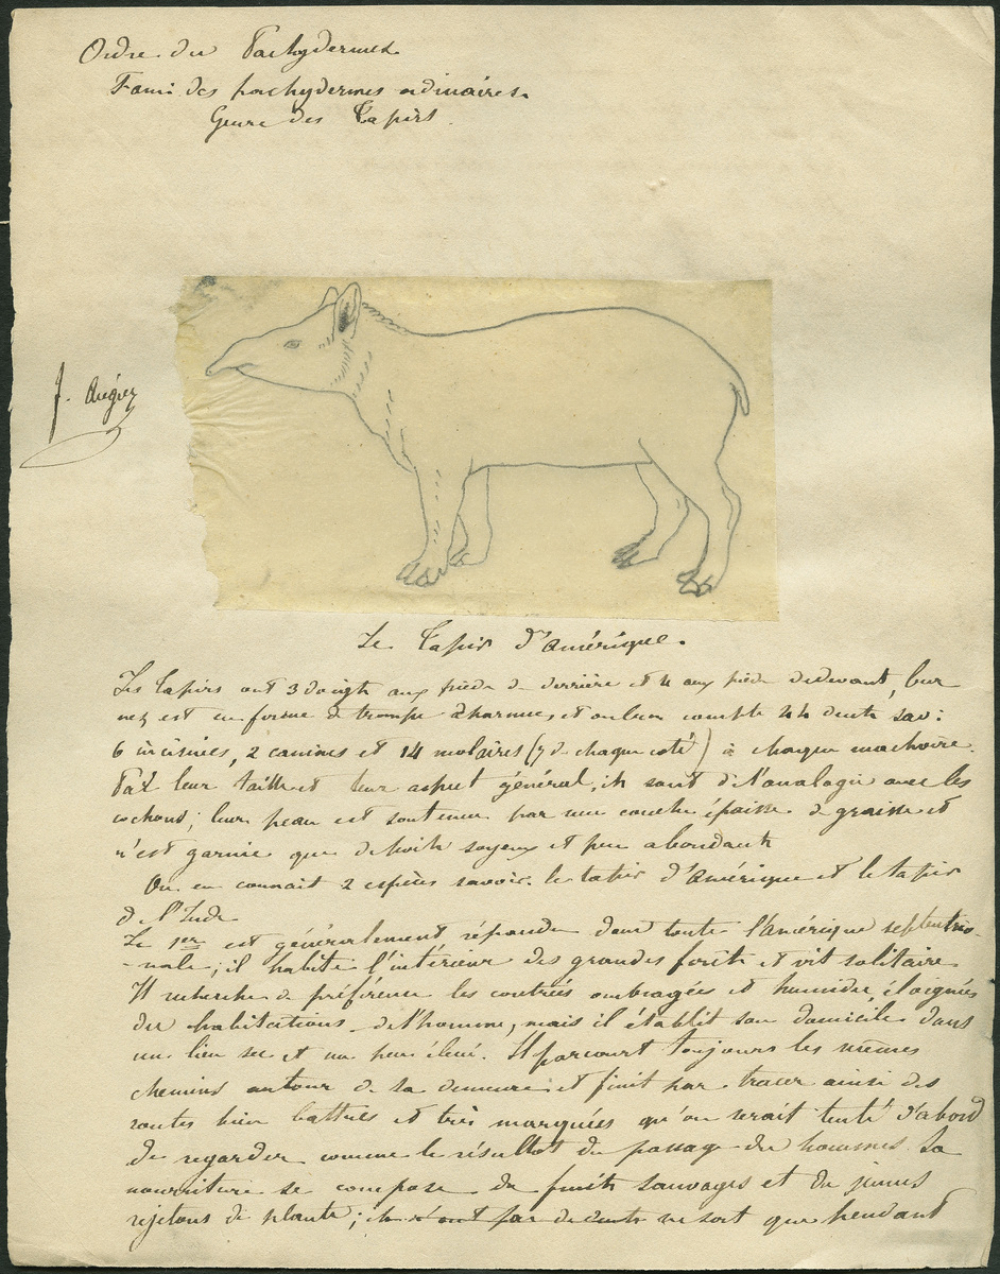 Ordre des Pachydermes
Fami des pachydermes ordinaires.
Genre des Tapirs.
J. Augier
Le Tapir d'Amérique.
Les tapirs ont 3 doigts aux pieds de derrière et 4 aux pieds dedevant, leur
nez est en forme de trompe charnue, et on leur compte 44 dents sav:
6 incisives, 2 canines et 14 molaires (7 de chaque coté) à chaque machoire.
Par leur taille et leur aspect général, ils sont de l'analogie avec les
cochons; leur peau est soutenue par une couche épaisse de graisse et
n'est garnie que de poils soyeux et peu abondants
On en connait 2 espèces savoir: le tapir d'Amérique et le tapir
de l'Inde
Le 1er est généralement répandu dans toute l'Amérique septentrio-
-nale; il habite l'intérieur des grandes forêts et vit solitaire
Il recherche de préférence les contrées ombragées et humides, éloignées
des habitations de l'homme, mais il établit son domicile dans
un lieu sec et un peu élevé. Il parcourt toujours les mêmes
chemins autour de sa demeure et finit par tracer ainsi des
routes bien battues et très marquées qu'on serait tenté d'abord
de regarder comme le résultat du passage des hommes. Sa
nourriture se compose de fruits sauvages et de jeunes
rejetons de plante; ne sort que pendant